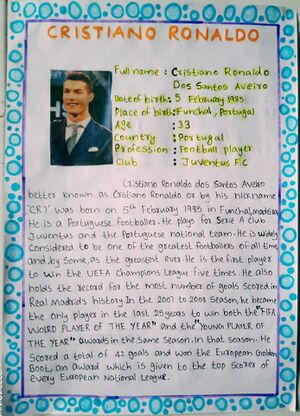 CRISTIANO RONALDO
Full name : Cristiano Ronaldo
Dos Santos Aveiro
Date of birth: 5 February 1985
Place of birth: Funchal, Portugal
Age : 33
Country : Portugal
Profession : Football player
Club : Juventus F.C
Cristiano Ronaldo dos Santos Aveiro
better known as Cristiano Ronaldo or by his nickname
'CR7' was born on 5th February 1985 in Funchal, madeira
He is a Portuguese footballer. He plays for Serie A club
Juventus and the Portuguese national team. He is widely
Considered to be one of the greatest footballers of all time,
and by some, as the greatest ever. He is the first player
to win the UEFA Champions League five times. He also
holds the record for the most number of goals scored in
Real Madrid's history. In the 2007 to 2008 season, he became
the only player in the last 25 years to win both the "FIFA
WORLD PLAYER OF THE YEAR" and the "YOUNG PLAYER OF
THE YEAR" Awards in the same season. In that season. He
Scored a total of 42 goals and won the European Golden
Boot, an Award which is given to the top scorer of
every European National League.